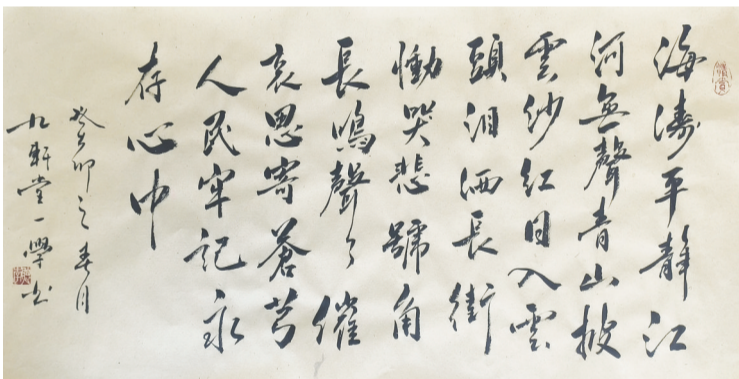 海濤平静江
河無聲青山披
雲紗紅日入雲
頭泪洒長街
慟哭悲號角
長鳴聲々催
哀思寄蒼芎
人民牢記永
存心中
癸卯之春月
九軒堂一學書